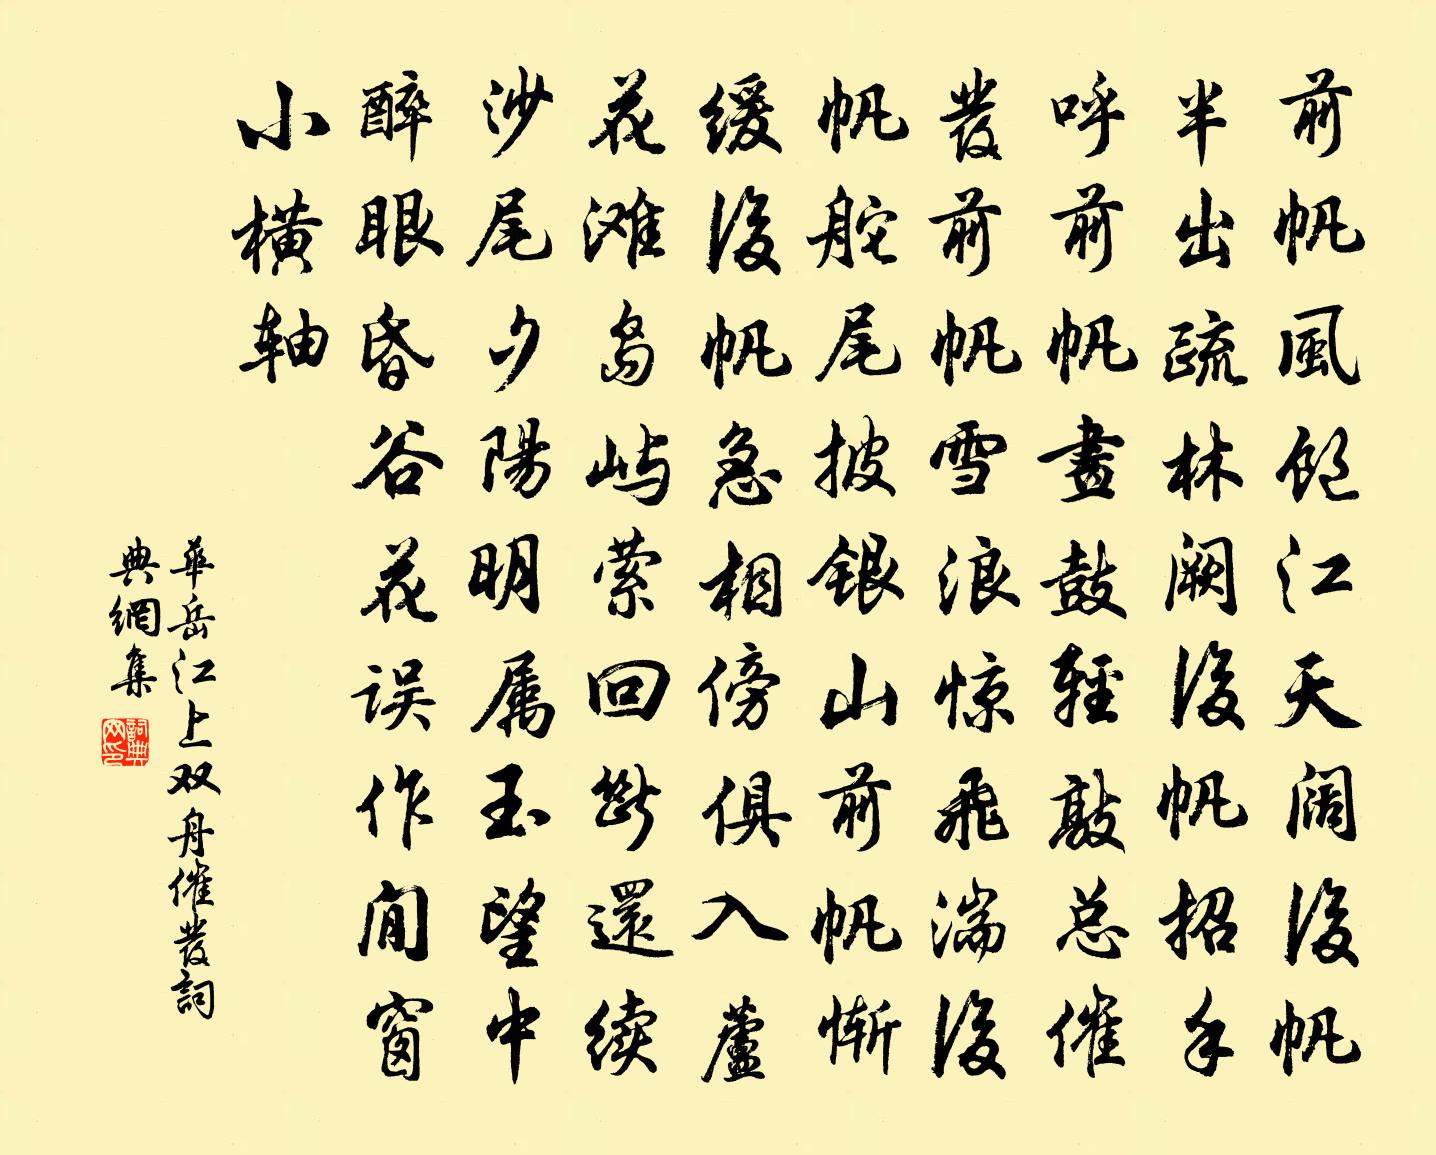 前帆風飽江天阔後帆
半出疏林阙後帆招手
呼前帆畫鼓輕敲总催
發前帆雪浪惊飛湍後
帆舵尾披銀山前帆惭
缓後帆急相傍俱入蘆
花滩岛屿萦回斷還续
沙尾夕陽明属玉望中
醉眼昏谷花误作閒窗
小横轴
華岳江上双舟催發詞
典網集
詞典网印